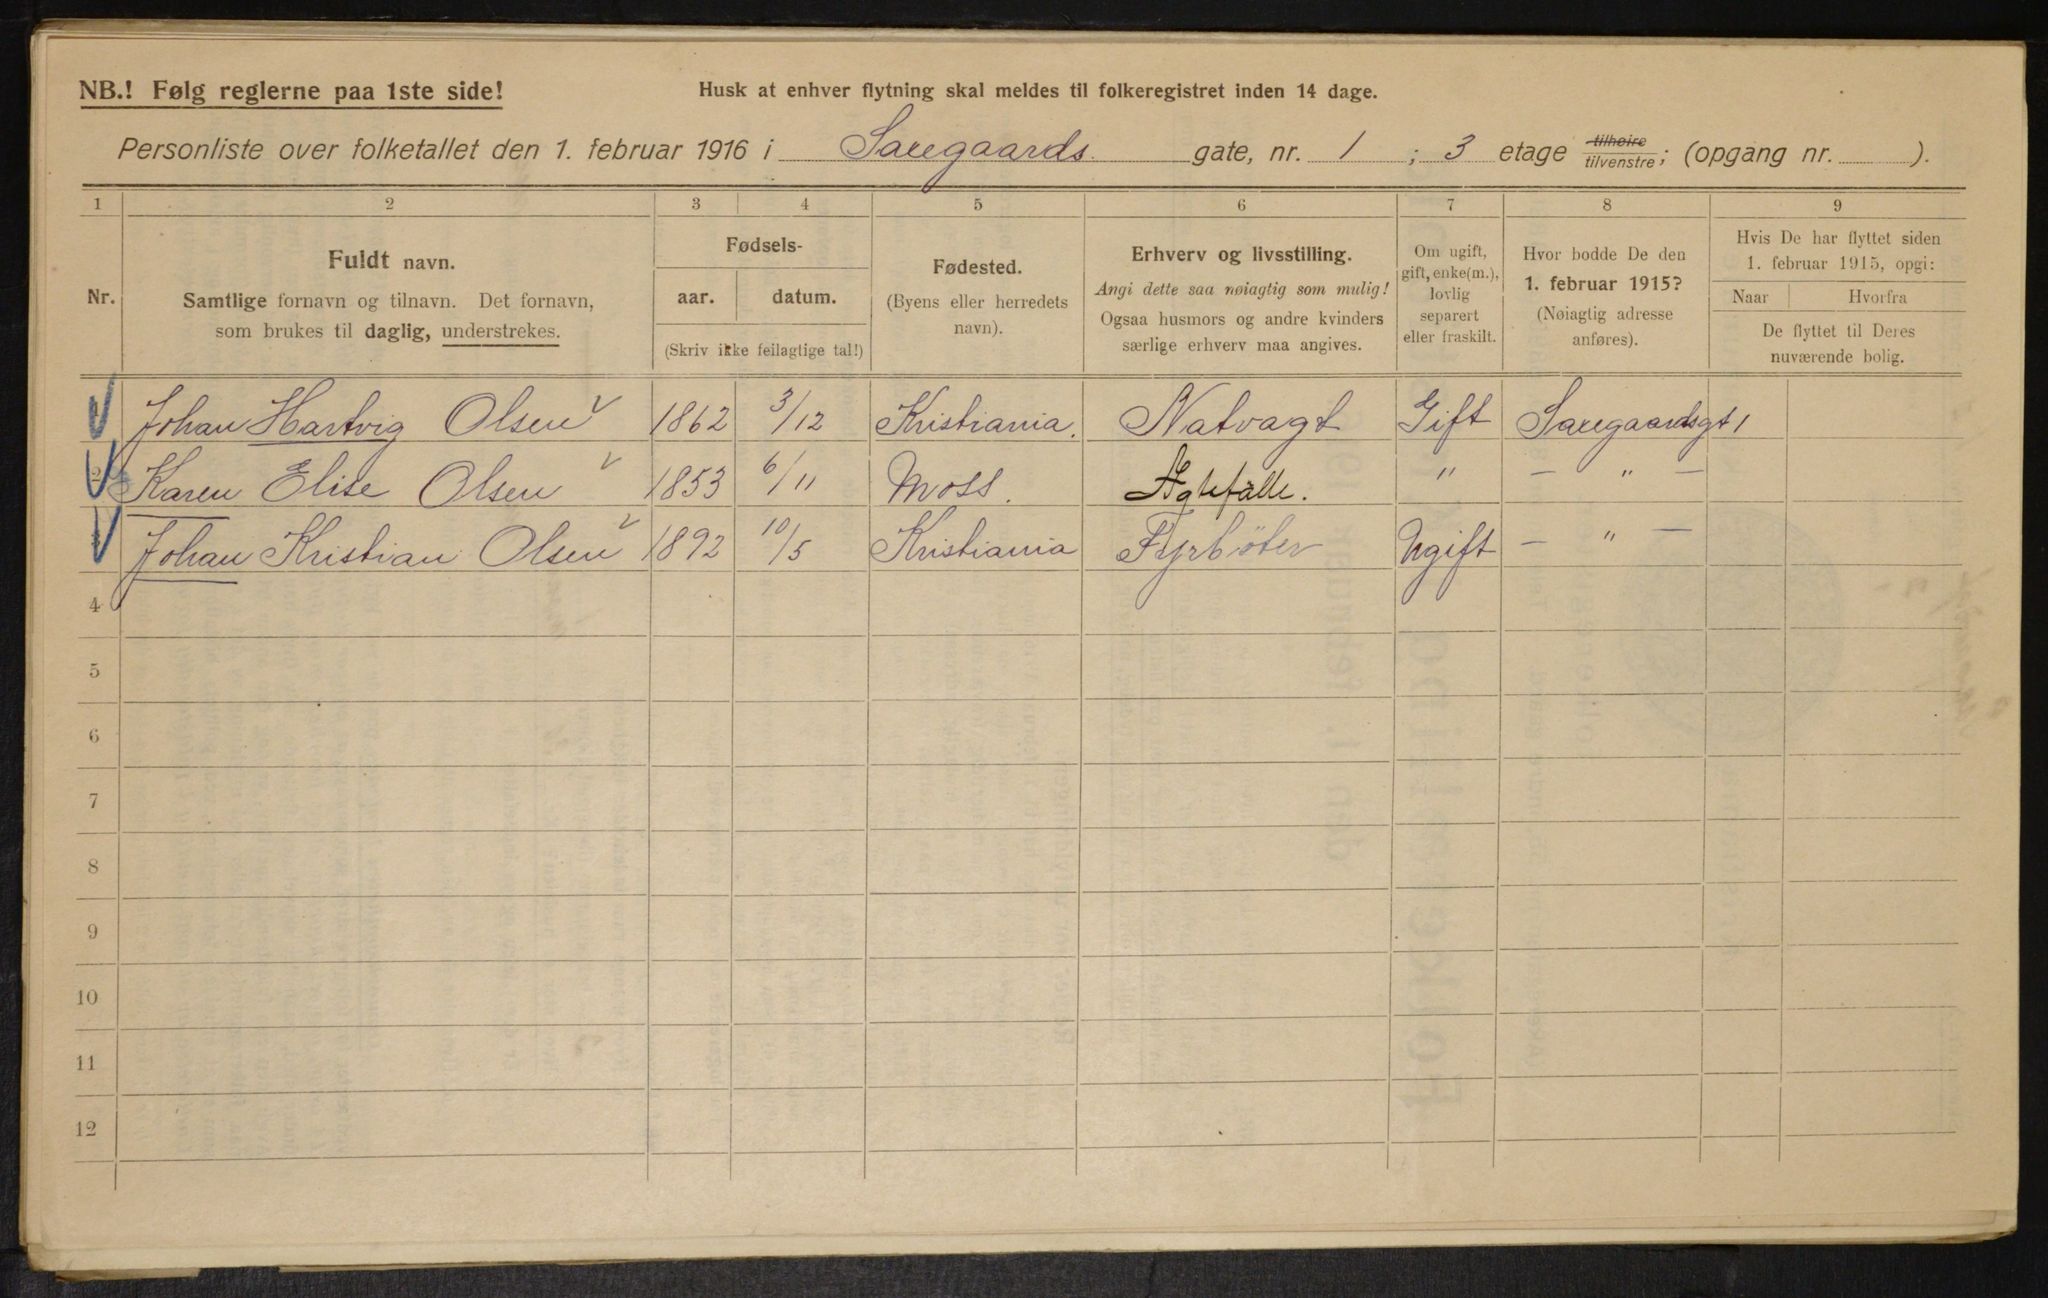 NB.! Følg reglerne paa 1ste side!
Husk at enhver flytning skal meldes til folkeregistret inden 14 dage.
Personliste over folketallet den 1. februar 1916 i Saxegaards gate, nr. 1 ; 3 etage tilhøire tilvenstre; (opgang nr. ).
1 2 3 4 5 6 7 8 9
Nr.
Fuldt navn.
Samtlige fornavn og tilnavn. Det fornavn,
som brukes til daglig, understrekes.
Fødsels-
aar. datum.
(Skriv ikke feilagtige tal!)
Fødested.
(Byens eller herredets
navn).
Erhverv og livsstilling.
Angi dette saa nøiagtig som mulig!
Ogsaa husmors og andre kvinders
særlige erhverv maa angives.
Om ugift,
gift, enke(m.),
lovlig
separert
eller fraskilt.
Hvor bodde De den
1. februar 1915?
(Nøiagtig adresse
anføres).
Hvis De har flyttet siden
1. februar 1915, opgi:
Naar Hvorfra
De flyttet til Deres
nuværende bolig.
1 Johan Hartvig Olsen 1862 3/12 Kristiania. Natvagt Gift Saxegaardsgt 1
2 Karen Elise Olsen 1853 6/11 Moss. Agtefälle. " — " —
3 Johan Kristian Olsen 1892 10/5 Kristiania Fyrböter Ugift — " —
4
5
6
7
8
9
10
11
12